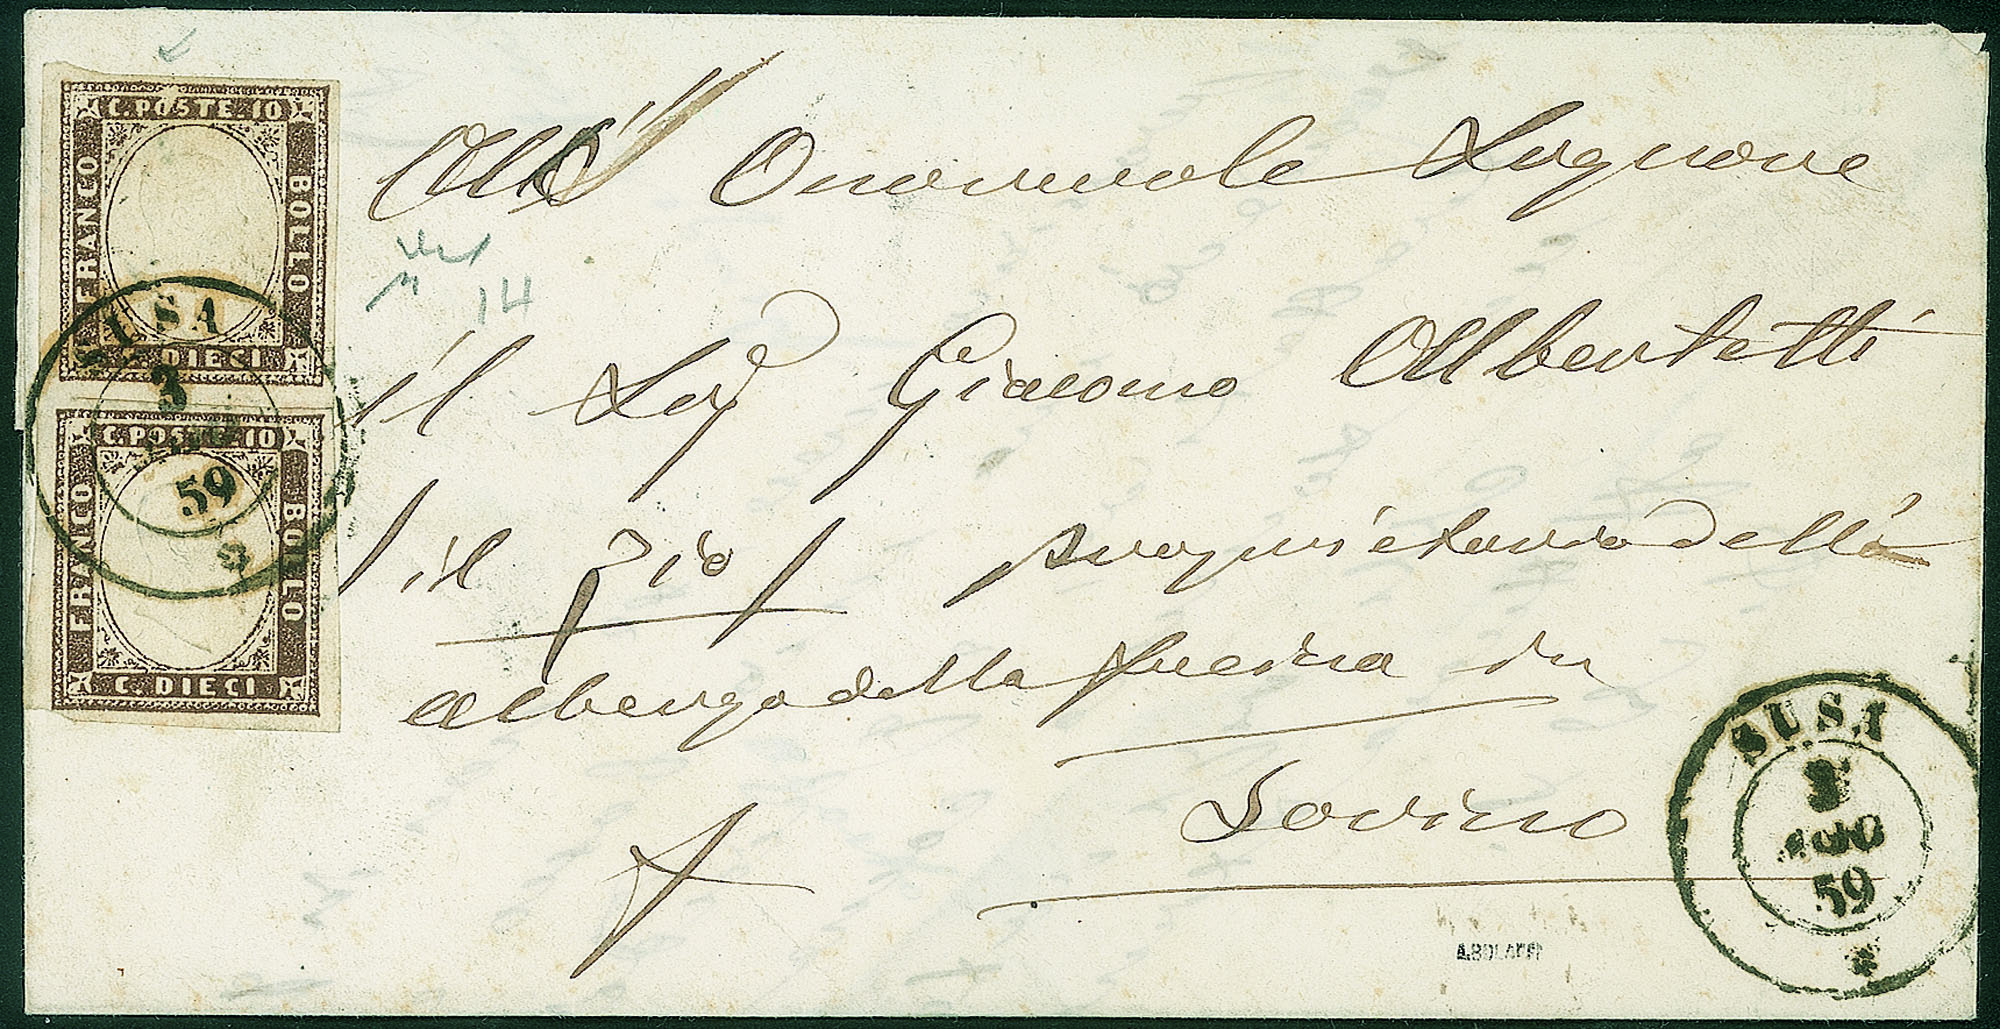 C. POSTE 10
FRANCO
BOLLO
C. DIECI
SUSA
3
59
C. POSTE 10
FRANCO
BOLLO
C. DIECI
All' Onorevole Signore
14
il Sig.e Giacomo Albertetti
il zio proprietario della
albergo della fucina in
Torino
SUSA
3
AGO
59
A. BOLAFFI